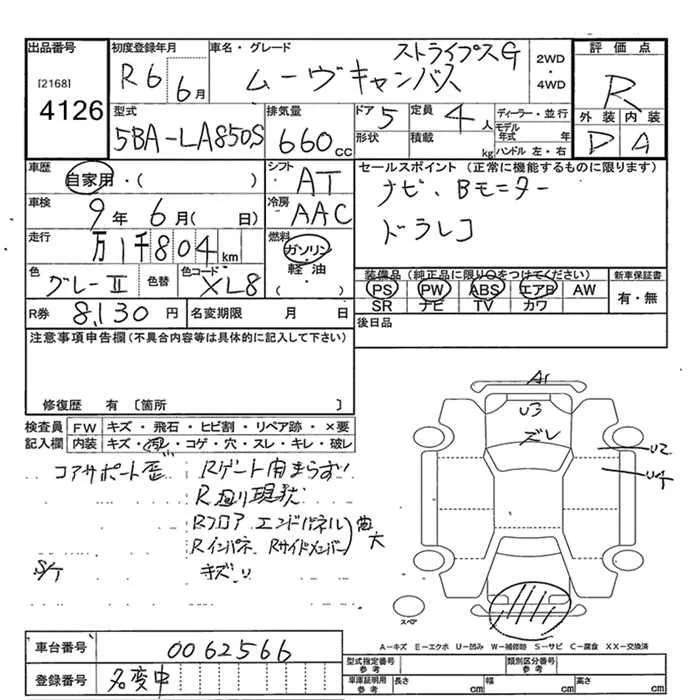 出品番号
[2168]
4126
初度登録年月
R6 6月
車名・グレード
ストライプスG
ムーヴキャンバス
2WD
・
4WD
評価点
R
外装 内装
D A
型式
5BA-LA850S
排気量
660cc
ドア 5
形状
定員 4人
積載 kg
ディーラー・並行
モデル年式 年
ハンドル 左・右
車歴
自家用・( )
シフト
AT
セールスポイント(正常に機能するものに限ります)
ナビ、Bモニター
ドラレコ
車検
9年 6月( 日)
冷房
AAC
走行
万1千804km
燃料
ガソリン
・
軽油
・
( )
色
グレーII
色替
色コード
XL8
装備品(純正品に限り○をつけてください)
PS PW ABS エアB AW
SR ナビ TV カワ
新車保証書
有・無
R券 8,130円
名変期限 月 日
後日品
注意事項申告欄(不具合内容等は具体的に記入して下さい)
修復歴 有 〔箇所 〕
検査員記入欄
FW キズ・飛石・ヒビ割・リペア跡・×要
内装 キズ・汚れ・コゲ・穴・スレ・キレ・破レ
コアサポート歪
Rゲート閉まらず
R廻り現状
Rフロア エンドパネル
Rインパネ、Rサイドメンバー
曲大
S/T
キズU
A1
U3
ズレ
U2
U4
スペア
A-キズ E-エクボ U-凹み W-補修跡 S-サビ C-腐食 XX-交換済
車台番号 0062566
登録番号 名変中
型式指定番号
参考
類別区分番号
参考
車庫証明用
参考
長さ cm
幅 cm
高さ cm